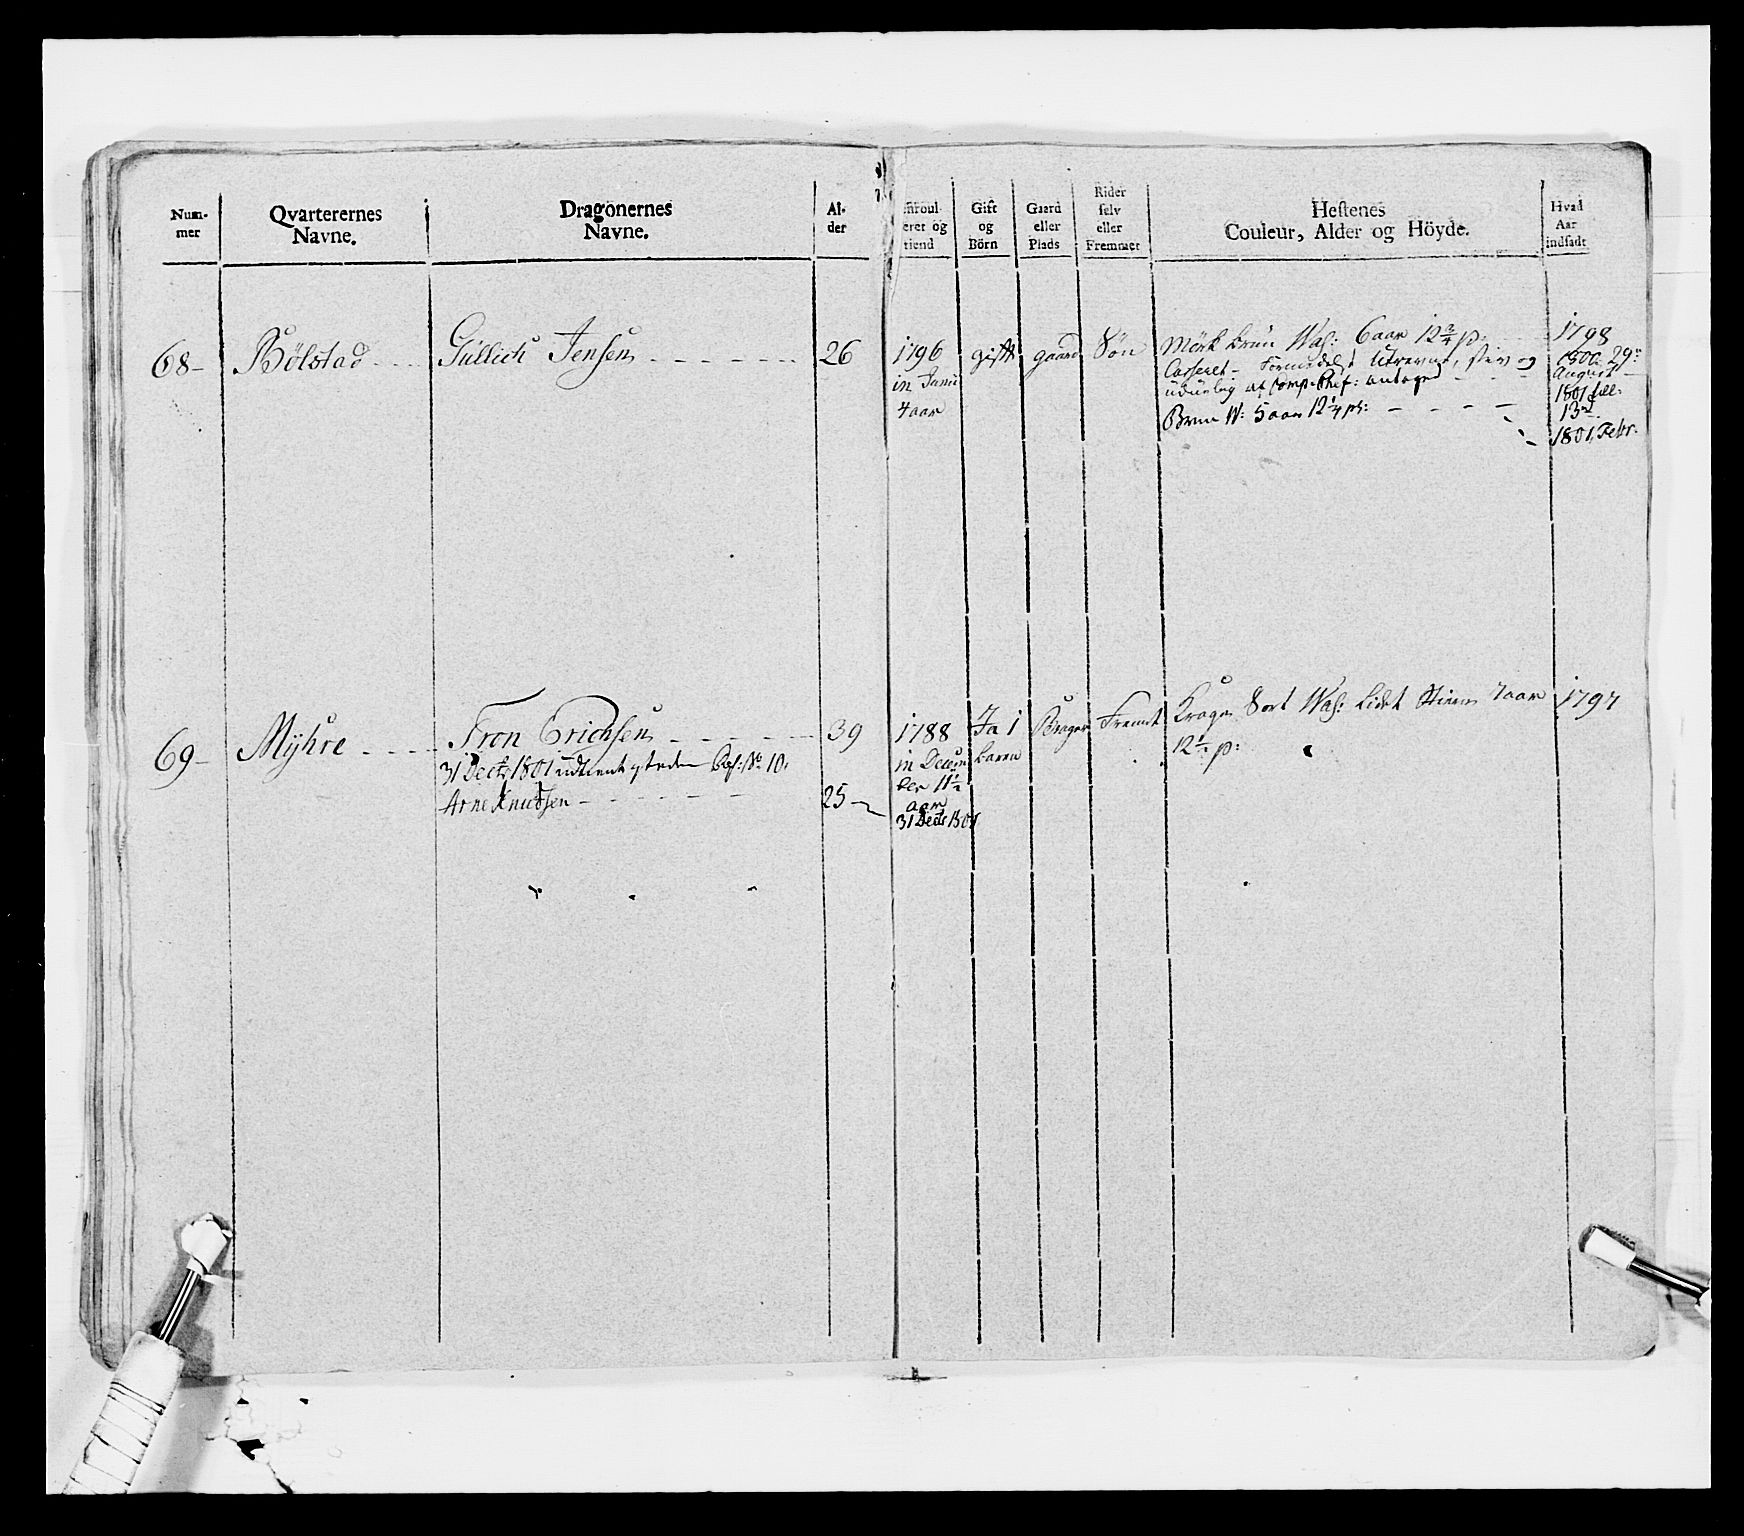 Num-
mer
Qvarterernes
Navne.
Dragonernes
Navne.
Al-
der
enroul
eret og
tiend
Gift
og
Börn
Gaard
eller
Plads
Rider
selv
eller
Fremmet
Hestenes
Couleur, Alder og Höyde.
Hvad
Aar
indsadt
68 - Bölstad - - Gullich Jensen - - - - - - 26
1796
in Junii
4 aar
gift
gaard
Sön
Mörk brun Wal: 6 aar 12 3/4 p: - - -
Casseret - Formedelst stiv og
uduelig af Comp: Chef: antaget - - -
Brun W: 5 aar 12 1/4 p: - - - -
1798
1800. 29:
August -
1801
13
1801, Febr.
69 - Myhre - - - Tron Erichsen - - - - - - 39
31 Decbr 1801 udtient No 10.
Arne Knudsen - - - - - - 25 -
1788
in Decem
ber 11 1/2
aar
31 Decbr 1801
Ja 1
barn
Brager
Fremt
Sort Wal: lidet Stiern 7 aar
12 1/2 p:
1797